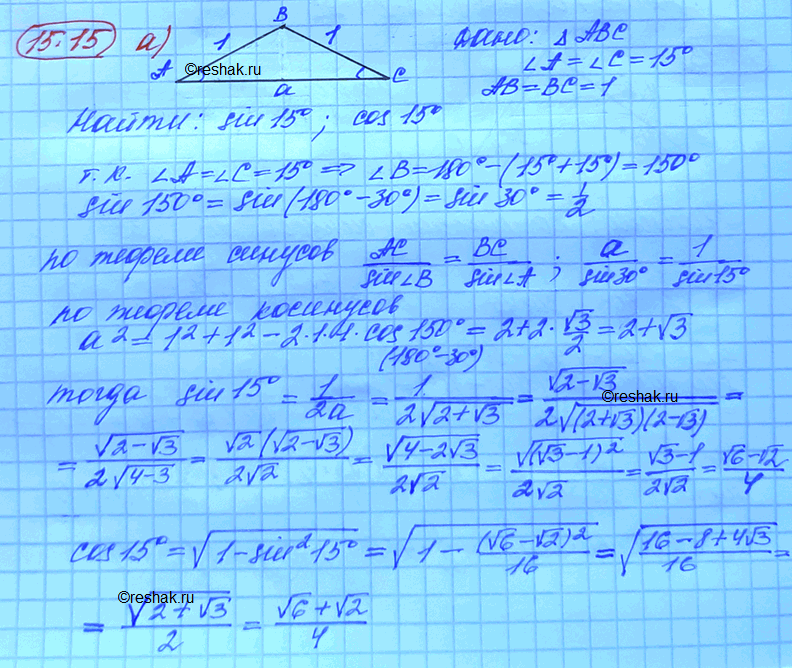 15.15 а) B 1 1 A C a ©reshak.ru
Дано: Δ ABC
∠A = ∠C = 15°
AB = BC = 1
Найти: sin 15°; cos 15°
т. к. ∠A = ∠C = 15° => ∠B = 180° - (15° + 15°) = 150°
sin 150° = sin (180° - 30°) = sin 30° = 1/2
по теореме синусов AC/sin∠B = BC/sin∠A ; a/sin30° = 1/sin15°
по теореме косинусов
a² = 1² + 1² - 2·1·1·cos 150° = 2 + 2·√3/2 = 2 + √3
(180° - 30°)
тогда sin 15° = 1/2a = 1/(2√(2+√3)) = √(2-√3)/(2√((2+√3)(2-√3))) =
= √(2-√3)/(2√(4-3)) = √2(√(2-√3))/(2√2) = √(4-2√3)/(2√2) = √((√3-1)²)/(2√2) = (√3-1)/(2√2) = (√6-√2)/4
cos 15° = √(1 - sin² 15°) = √(1 - (√6-√2)²/16) = √((16-8+4√3)/16) =
©reshak.ru
= √(2+√3)/2 = (√6+√2)/4